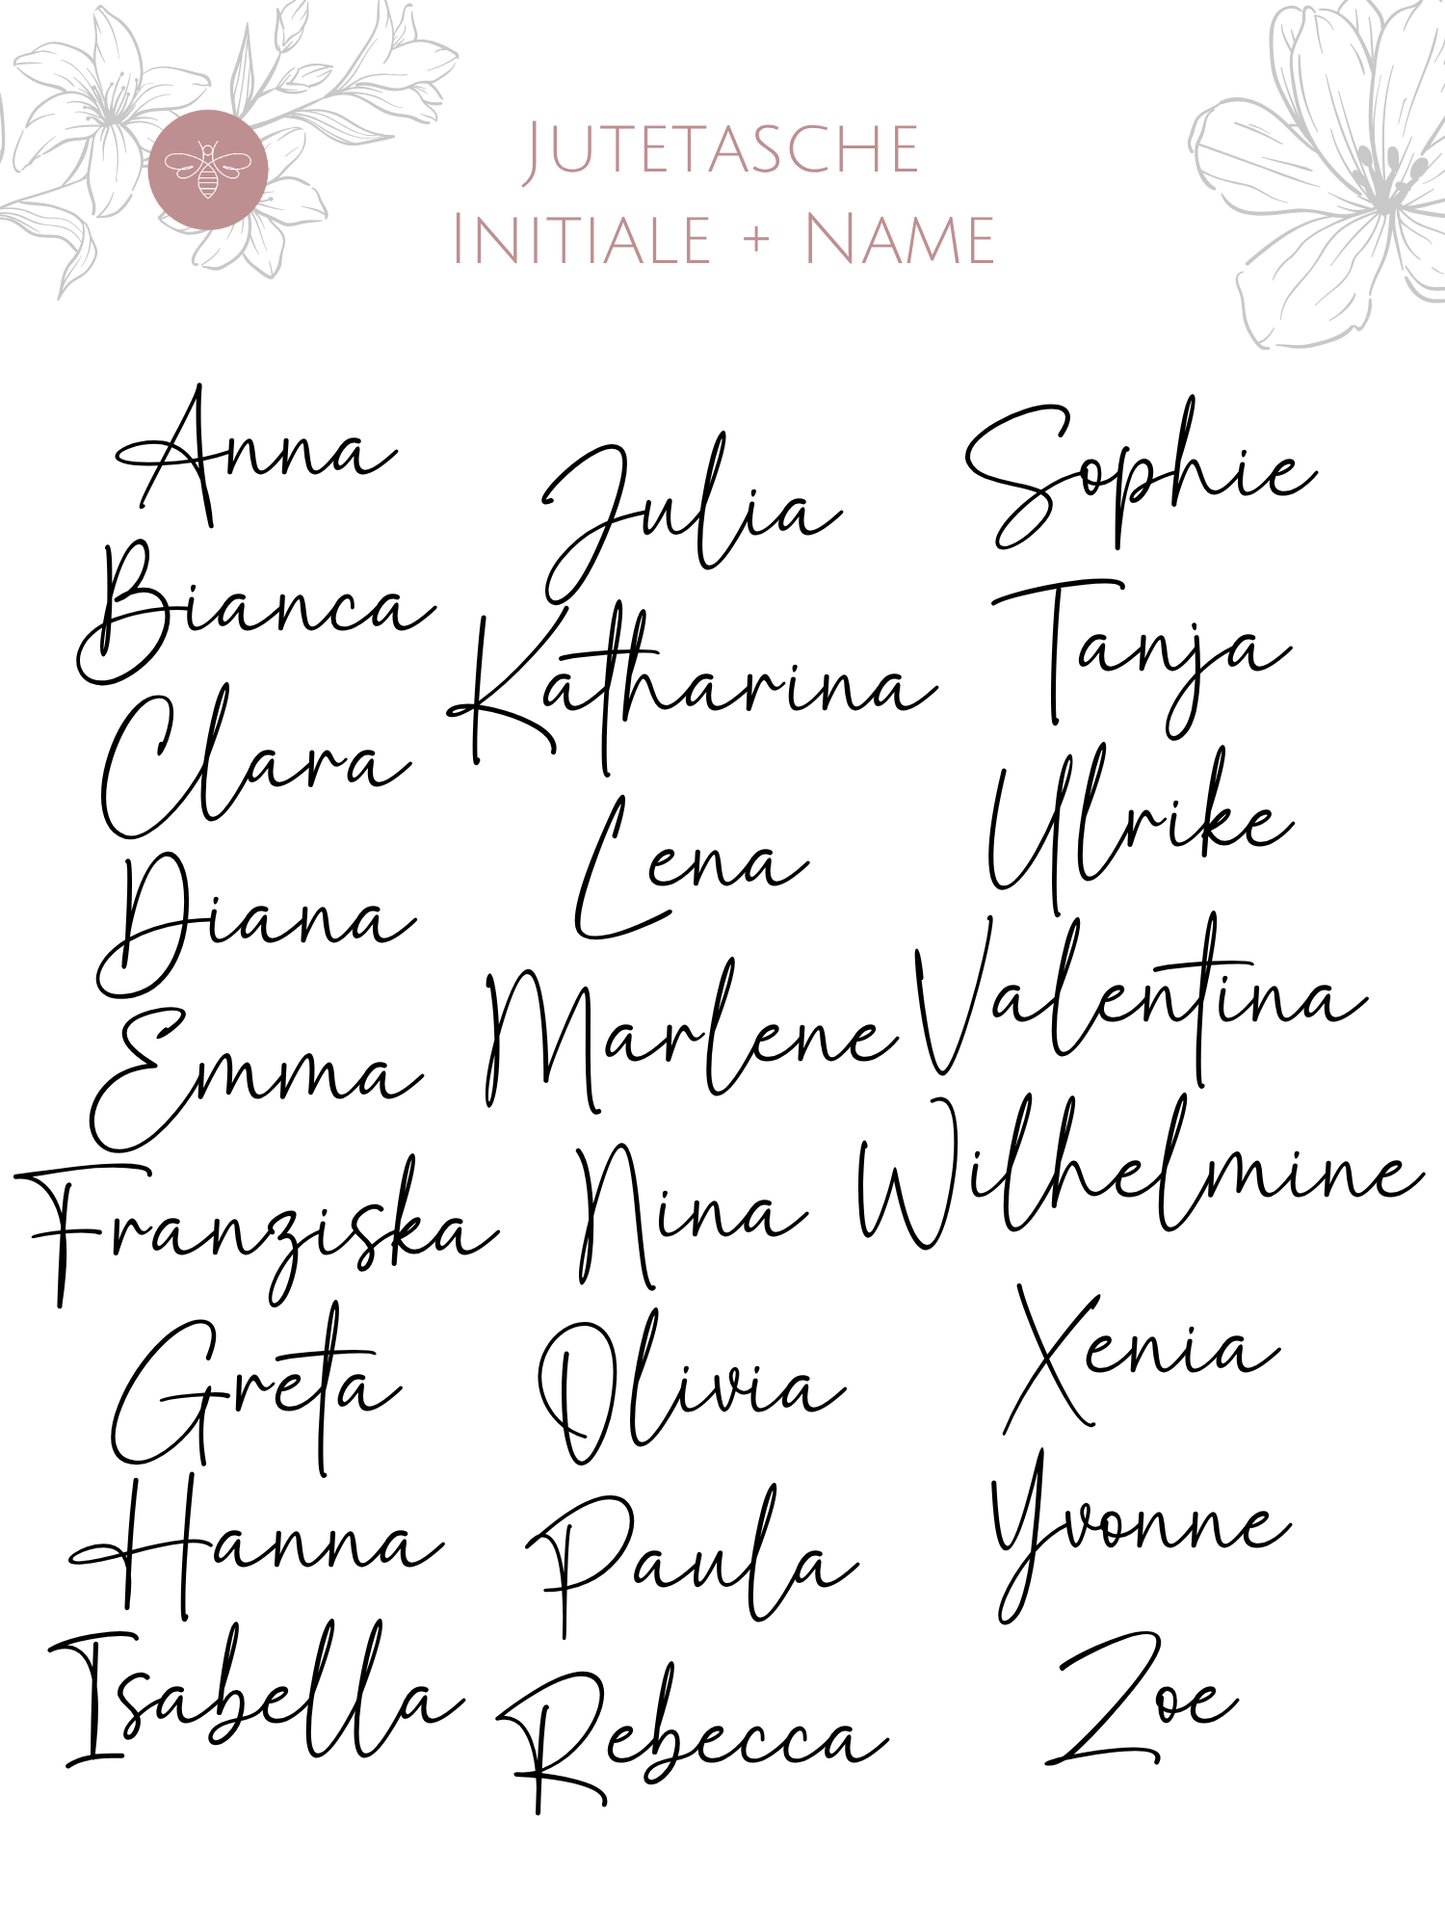 Jutetasche
Initiale + Name
Anna
Bianca
Clara
Diana
Emma
Franziska
Greta
Hanna
Isabella
Julia
Katharina
Lena
Marlene
Nina
Olivia
Paula
Rebecca
Sophie
Tanja
Ulrike
Valentina
Wilhelmine
Xenia
Yvonne
Zoe